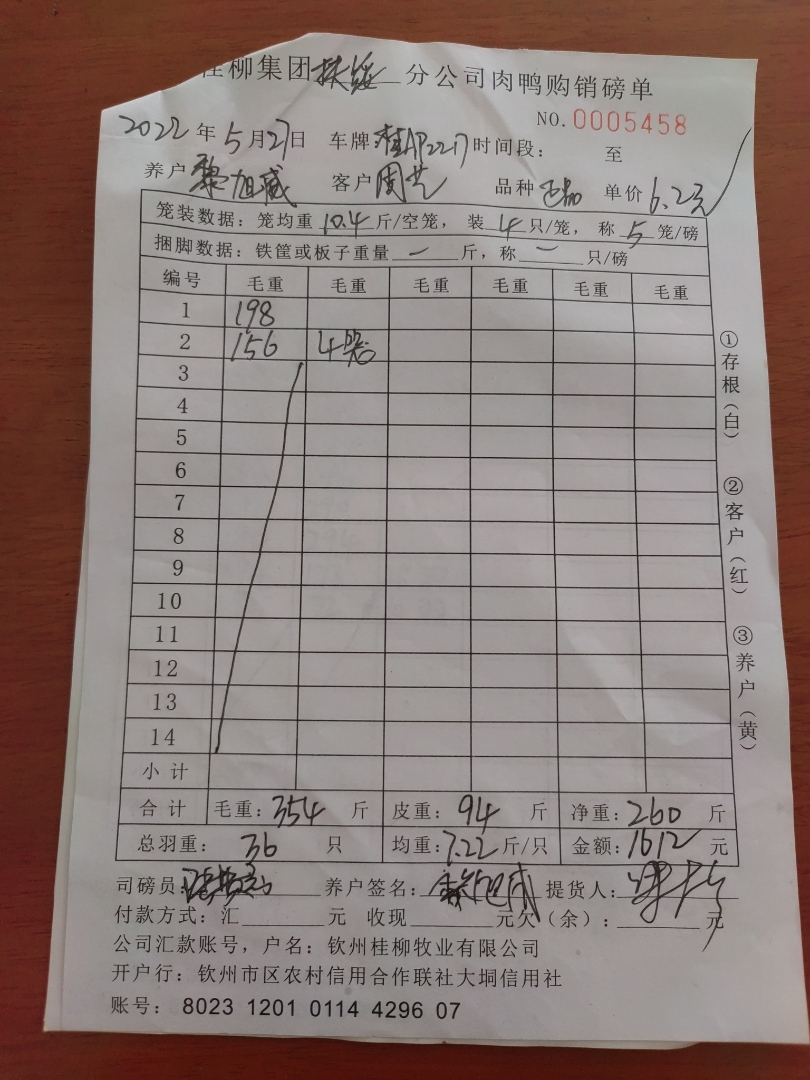 桂柳集团扶绥分公司肉鸭购销磅单
NO.0005458
2022年5月27日 车牌桂AP2217 时间段： 至
养户 黎旭威 客户 周艺 品种 单价6.2元
笼装数据：笼均重10.4斤/空笼，装4只/笼，称5笼/磅
捆脚数据：铁筐或板子重量一斤，称一只/磅
编号 毛重 毛重 毛重 毛重 毛重 毛重
1 198
2 156 4笼
3
4
5
6
7
8
9
10
11
12
13
14
小计
合计 毛重：354斤 皮重：94斤 净重：260斤
总羽重：36只 均重：7.22斤/只 金额：1612元
司磅员： 养户签名：黎旭威 提货人：
付款方式：汇 元 收现 元欠（余）： 元
公司汇款账号，户名：钦州桂柳牧业有限公司
开户行：钦州市区农村信用合作联社大垌信用社
账号：8023 1201 0114 4296 07
①存根（白）
②客户（红）
③养户（黄）